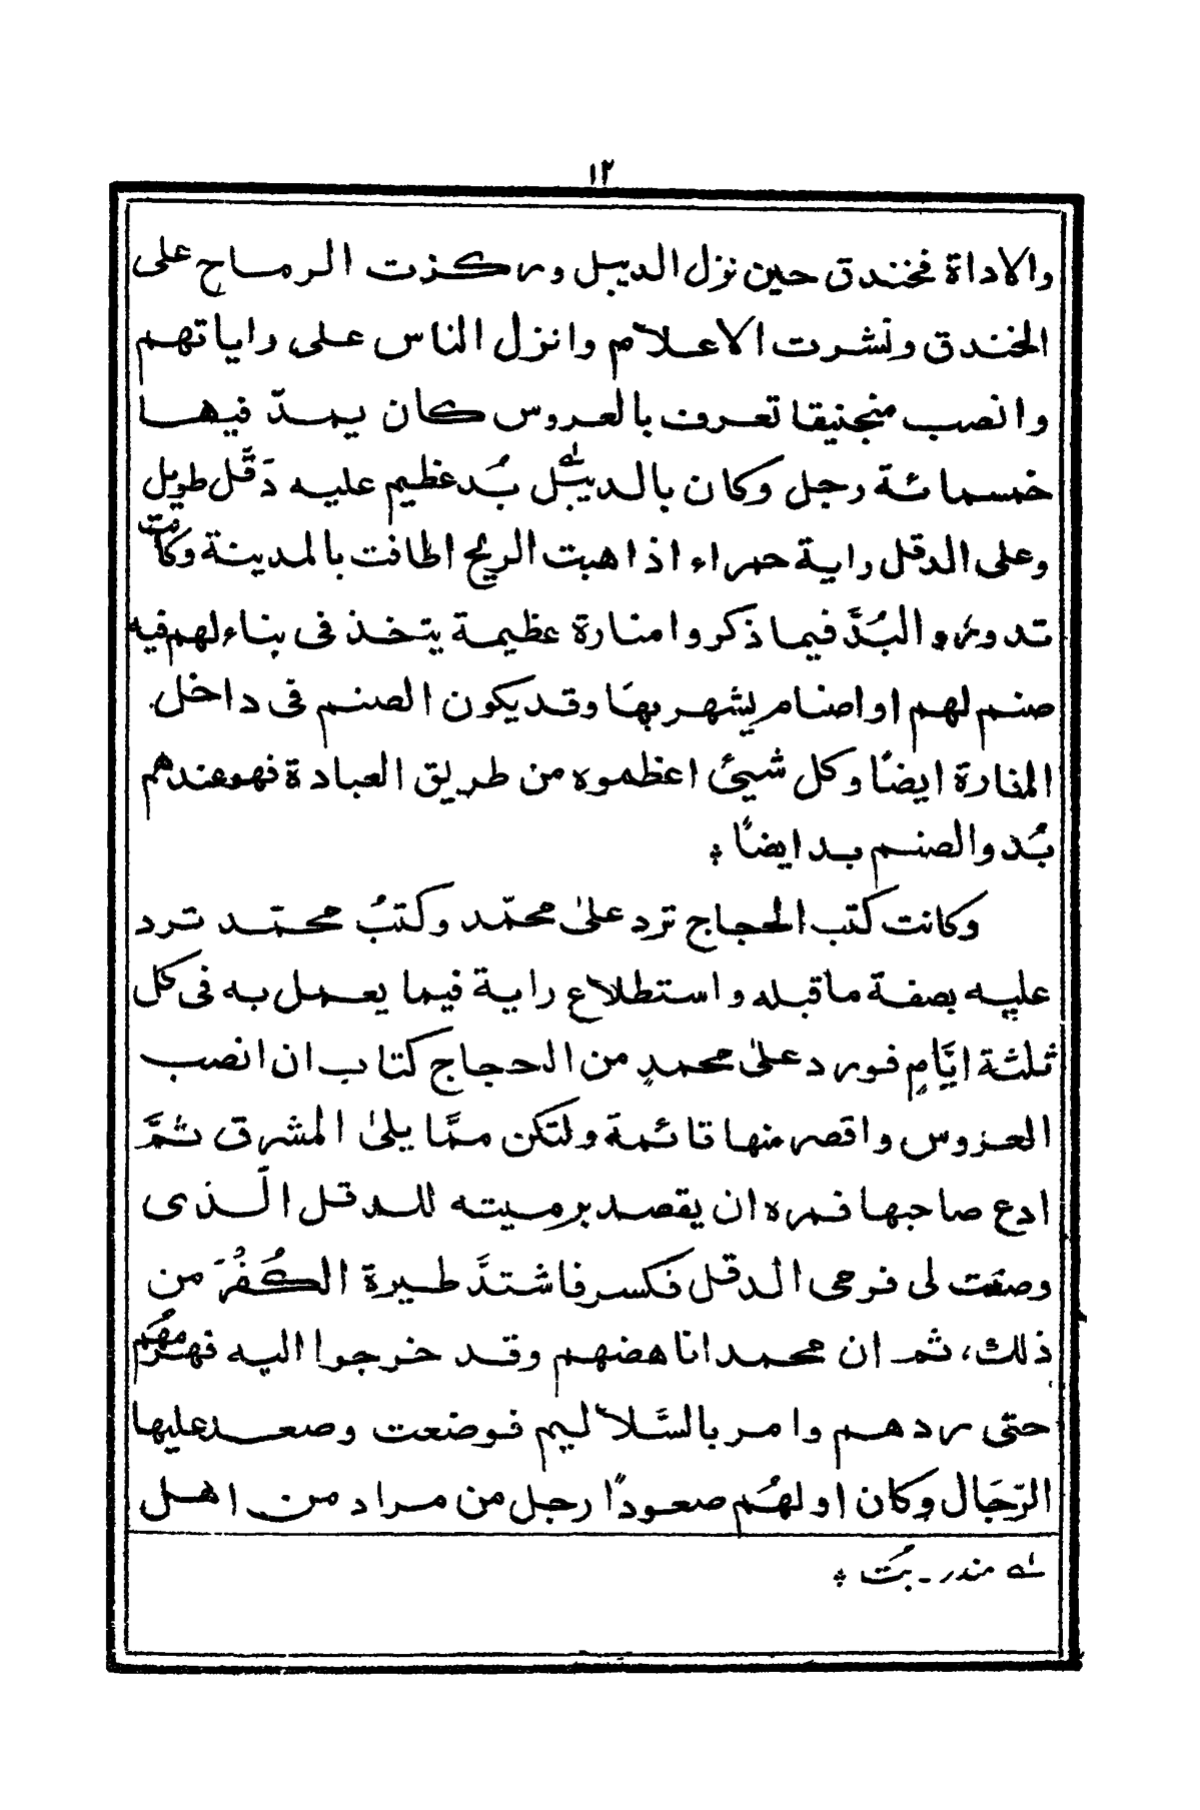 ١٢
والاداة فخندق حين نزل الديبل وركزت الرماح على
الخندق ونشرت الاعلام وانزل الناس على راياتهم
وانصب منجنيقا تعرف بالعروس كان يمدّ فيها
خمسمائة رجل وكان بالديبل بُد عظيم عليه دَقَل طويل
وعلى الدقل راية حمراء اذا هبت الريح اطافت بالمدينة وكانت
تدور، والبُدَّ فيما ذكروا منارة عظيمة يتخذ فى بناء لهم فيه
صنم لهم او اصنام يشهر بها وقد يكون الصنم فى داخل
المنارة ايضًا وكل شيئ اعظموه من طريق العبادة فهو عندهم
بُد والصنم بد ايضًا ؞
وكانت كتب الحجاج ترد علىٰ محمّد وكتبُ محمّد ترد
عليه بصفة ما قبله واستطلاع راية فيما يعمل به فى كل
ثلثة ايَّامٍ فورد علىٰ محمدٍ من الحجاج كتاب ان انصب
العروس واقصر منها قائمة ولتكن ممَّا يلىٰ المشرق ثمَّ
ادع صاحبها فمره ان يقصد برميته للدقل الّذى
وصفت لى فرمى الدقل فكسر فاشتدَّ طيرة الكُفُرَ من
ذلك، ثم ان محمد اناهضهم وقد خرجوا اليه فهزمهُم
حتى ردهم وامر بالسَّلاليم فوضعت وصعد عليها
الرّجَال وكان اولهُم صعودًا رجل من مراد من اهل
لـه مندر ـ بُت ؞